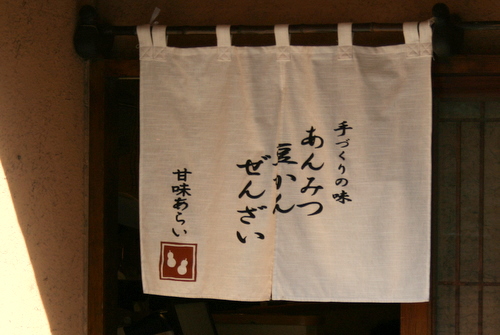 手づくりの味
あんみつ
豆かん
ぜんざい
甘味あらい